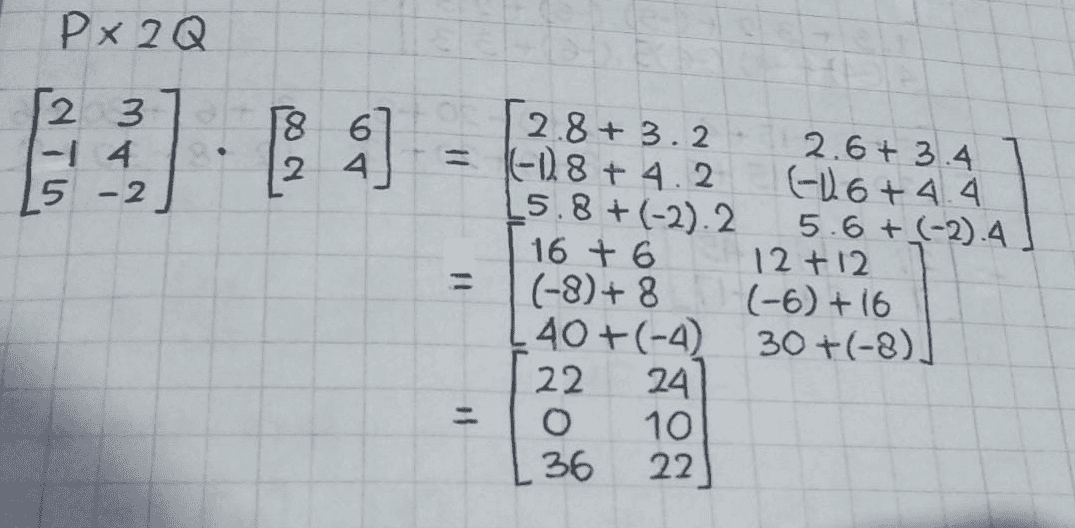 P x 2Q
[2 3] . [8 6] = [2.8 + 3.2 2.6 + 3.4]
[-1 4] [2 4] [(-1).8 + 4.2 (-1).6 + 4.4]
[5 -2] [5.8 + (-2).2 5.6 + (-2).4]
= [16 + 6 12 + 12]
[(-8) + 8 (-6) + 16]
[40 + (-4) 30 + (-8)]
= [22 24]
[0 10]
[36 22]